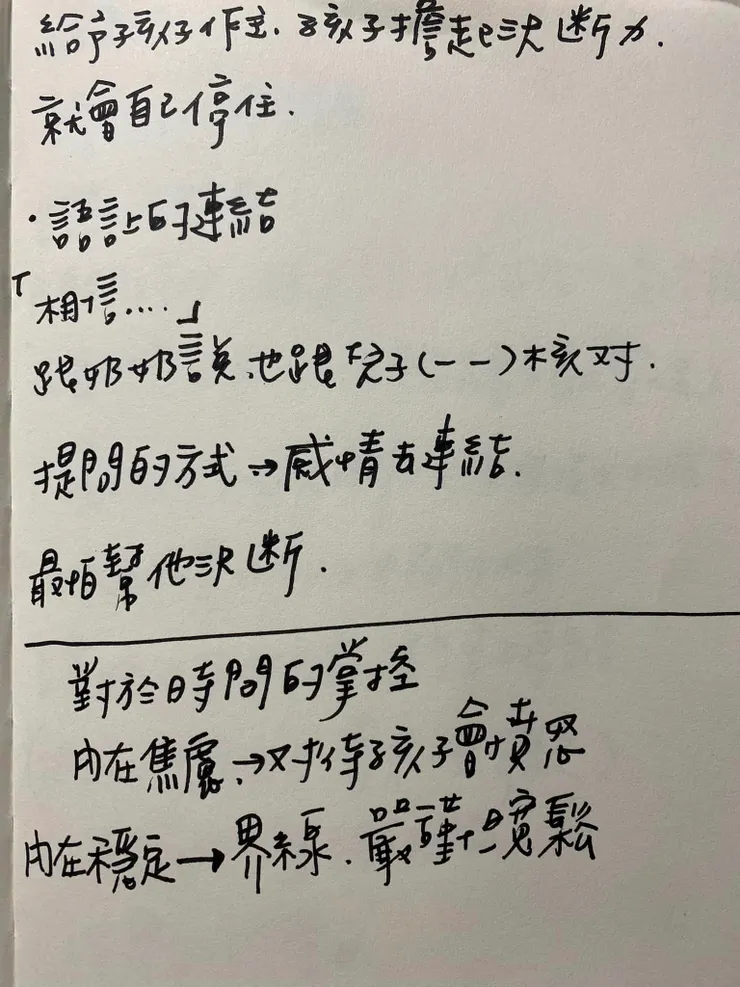 給予孩子作主.孩子擔起決斷力.
就會自己停住.
·語言上的連結
「相信....」
跟奶奶說.也跟孩子(一一)核对.
提問的方式→感情去連結.
最怕幫他決斷.
對於時間的掌控
內在焦慮.→对待孩子會憤怒
內在穩定→界線.嚴謹+寬鬆